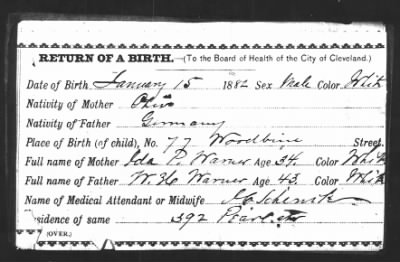 RETURN OF A BIRTH.—(To the Board of Health of the City of Cleveland.)
Date of Birth January 15 1882 Sex Male Color Whit
Nativity of Mother Ohio
Nativity of Father Germany
Place of Birth (of child), No. 77 Woodbine Street.
Full name of Mother Ida P. Warner Age 34. Color Whit
Full name of Father W. H. Warner Age 43. Color Whit
Name of Medical Attendant or Midwife Schenck
esidence of same 392 Pearl St
(OVER.)